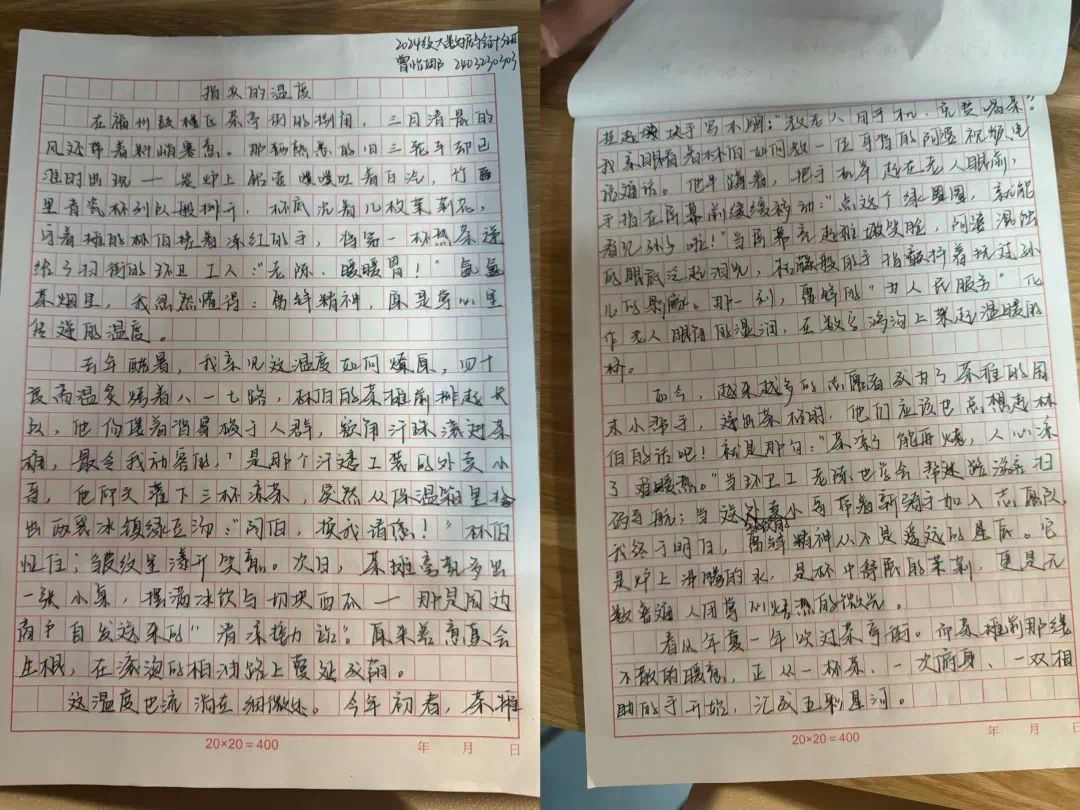 2024级大数据与会计
2403230303
指尖的温度
在福州鼓楼区茶亭街的拐角，三月清晨的
风还带着料峭寒意。那辆熟悉的旧三轮车却已
准时出现——炭炉上铝壶噗噗吐着白汽，竹
里青瓷杯列队般排开，杯底沉着几枚茉莉花，
守着摊的林伯搓着冻红的手，将第一杯热茶递
给了扫街的环卫工人："老陈，暖暖胃！"氤氲
茶烟里，我忽然懂得：雷锋精神，原是掌心里
传递的温度。
去年酷暑，我亲见这温度如何燎原，四十
度高温炙烤着八一七路，林伯的茶摊前排起长
队，他佝偻着背穿梭于人群，额角汗珠滚进茶
桶，最令我动容的，是那个汗透工装的外卖小
哥，他仰头灌下三杯凉茶，突然从保温箱里掏
出两袋冰镇绿豆汤："阿伯，换我请您！"林伯
怔住；皱纹里漾开笑意。次日，茶摊旁竟多出
一张小桌，摆满冰饮与切块西瓜——那是周边
商户自发送来的"清凉接力站"。原来善意真会
生根，在滚烫的柏油路上蔓延成荫。
这温度也流淌在细微处。今年初春，茶摊
挂起块手写木牌："教老人用手机，免费喝茶。"
我亲眼看着林伯如何教一位耳背的阿婆视频
通话。他半蹲着，把手机举起在老人眼前，
手指在屏幕前缓缓移动："点这个绿圆圈，就能
看见孙子啦！"当屏幕亮起稚嫩笑脸，阿婆混浊
的眼底泛起泪光，枯枝般的手指摩挲着抚过孙
儿的影廓。那一刻，雷锋的"为人民服务"化
作老人眼角的湿润，在数字鸿沟上架起温暖的
桥。
如今，越来越多的志愿者成为了茶摊的周
末小帮手，递出茶杯时，他们应该也会想起林
伯的话吧！就是那句："茶凉了能再烧，人心凉
了难暖热。"当环卫工老陈也学会帮迷路游客扫
码导航；当送外卖小哥带着新骑手加入志愿队，
我终于明白，雷锋精神从不是遥远的星辰。它
是炉上沸腾的水，是杯中舒展的茉莉，更是无
数普通人用掌心焐热的微光。
春风年复一年吹过茶亭街。而茶摊前那缕
不散的暖意，正从一杯茶、一次俯身、一双相
助的手开始，汇成五彩星河。
20×20=400
年 月 日
20×20=400
年 月 日